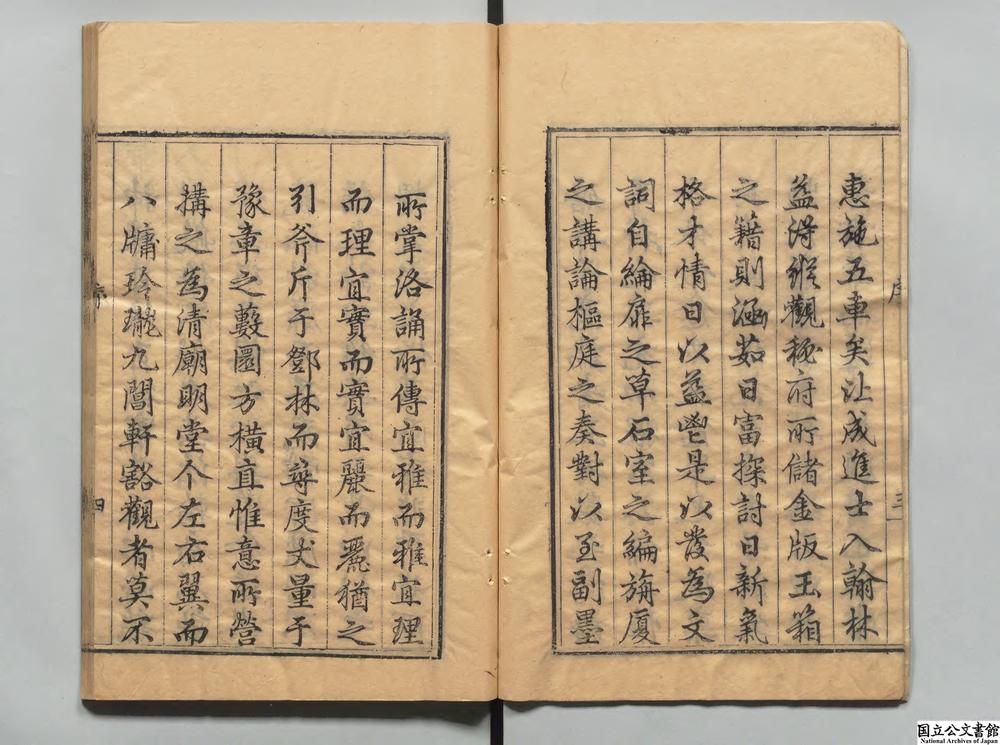 序
三
惠施五車矣成進士入翰林
益得縱觀秘府所儲金版玉箱
之籍則涵茹日富探討日新氣
格才情日以益鬯是以發為文
詞自綸扉之草石室之編旃廈
之講論樞庭之奏對以至副墨
所掌洛誦所傳宜雅而雅宜理
而理宜實而實宜麗而麗猶之
引斧斤于鄧林而尋度丈量于
豫章之藪圓方橫直惟意所營
搆之為清廟明堂个左右翼而
八牖玲瓏九閶軒豁觀者莫不
序
四
国立公文書館
National Archives of Japan